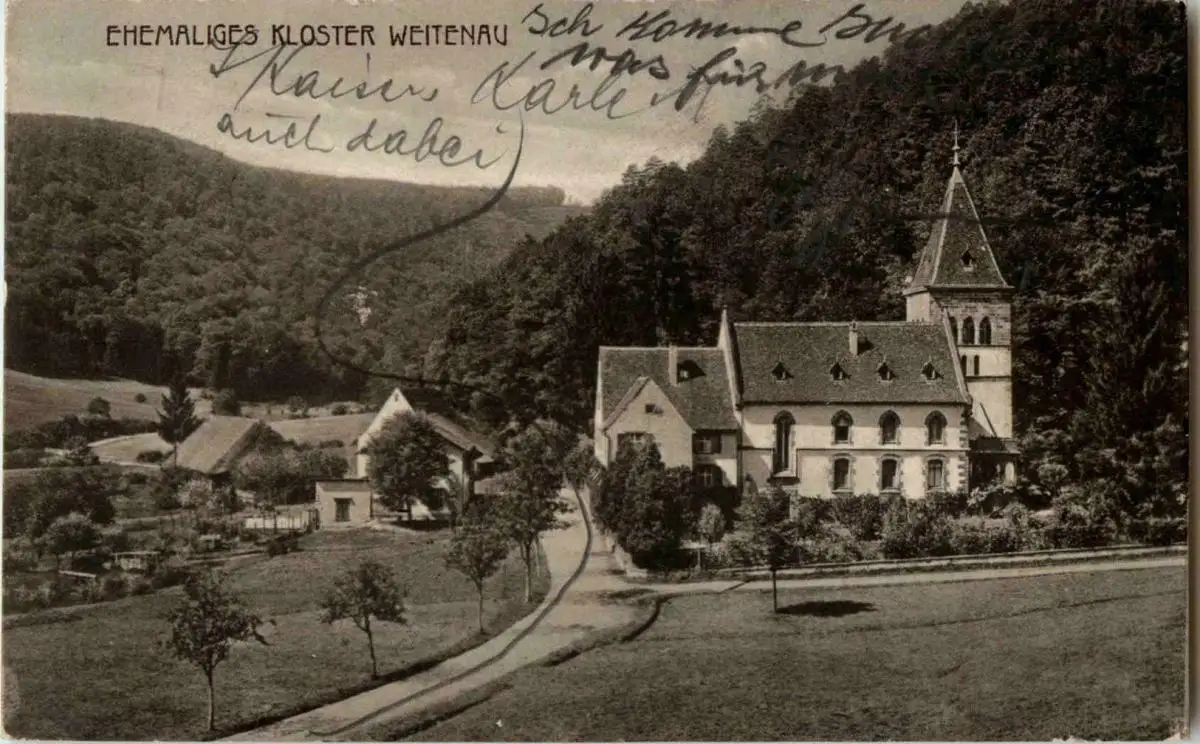 EHEMALIGES KLOSTER WEITENAU
Ich komme
was für
Kaiser Karle
auch dabei